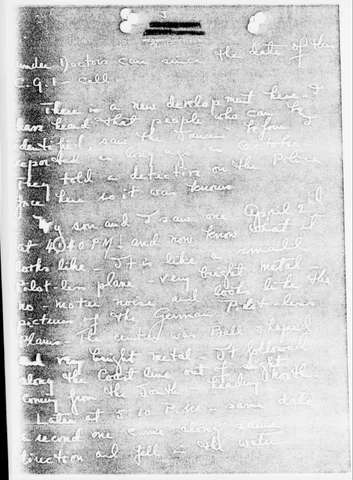 under Doctors care since the date of this
C.Q.I - Call.
There is a new development here - I
have heard that people who can be
identified, saw the
reported as long ago as October
They told a detective on the Police
force here so it was known
My son and I saw one April 2nd
at 4:40 PM! and now know what it
looks like - It is like a small
Pilot-less plane - very bright metal
no motor noise and looks like the
pictures of the German Pilot-less
Planes - The center was Bell shaped
and very bright metal - It followed
along the Coast line out for
coming from the South - Heading North
Later at 5:10 P.M. - same date
a second one came along same
direction and fell in the water